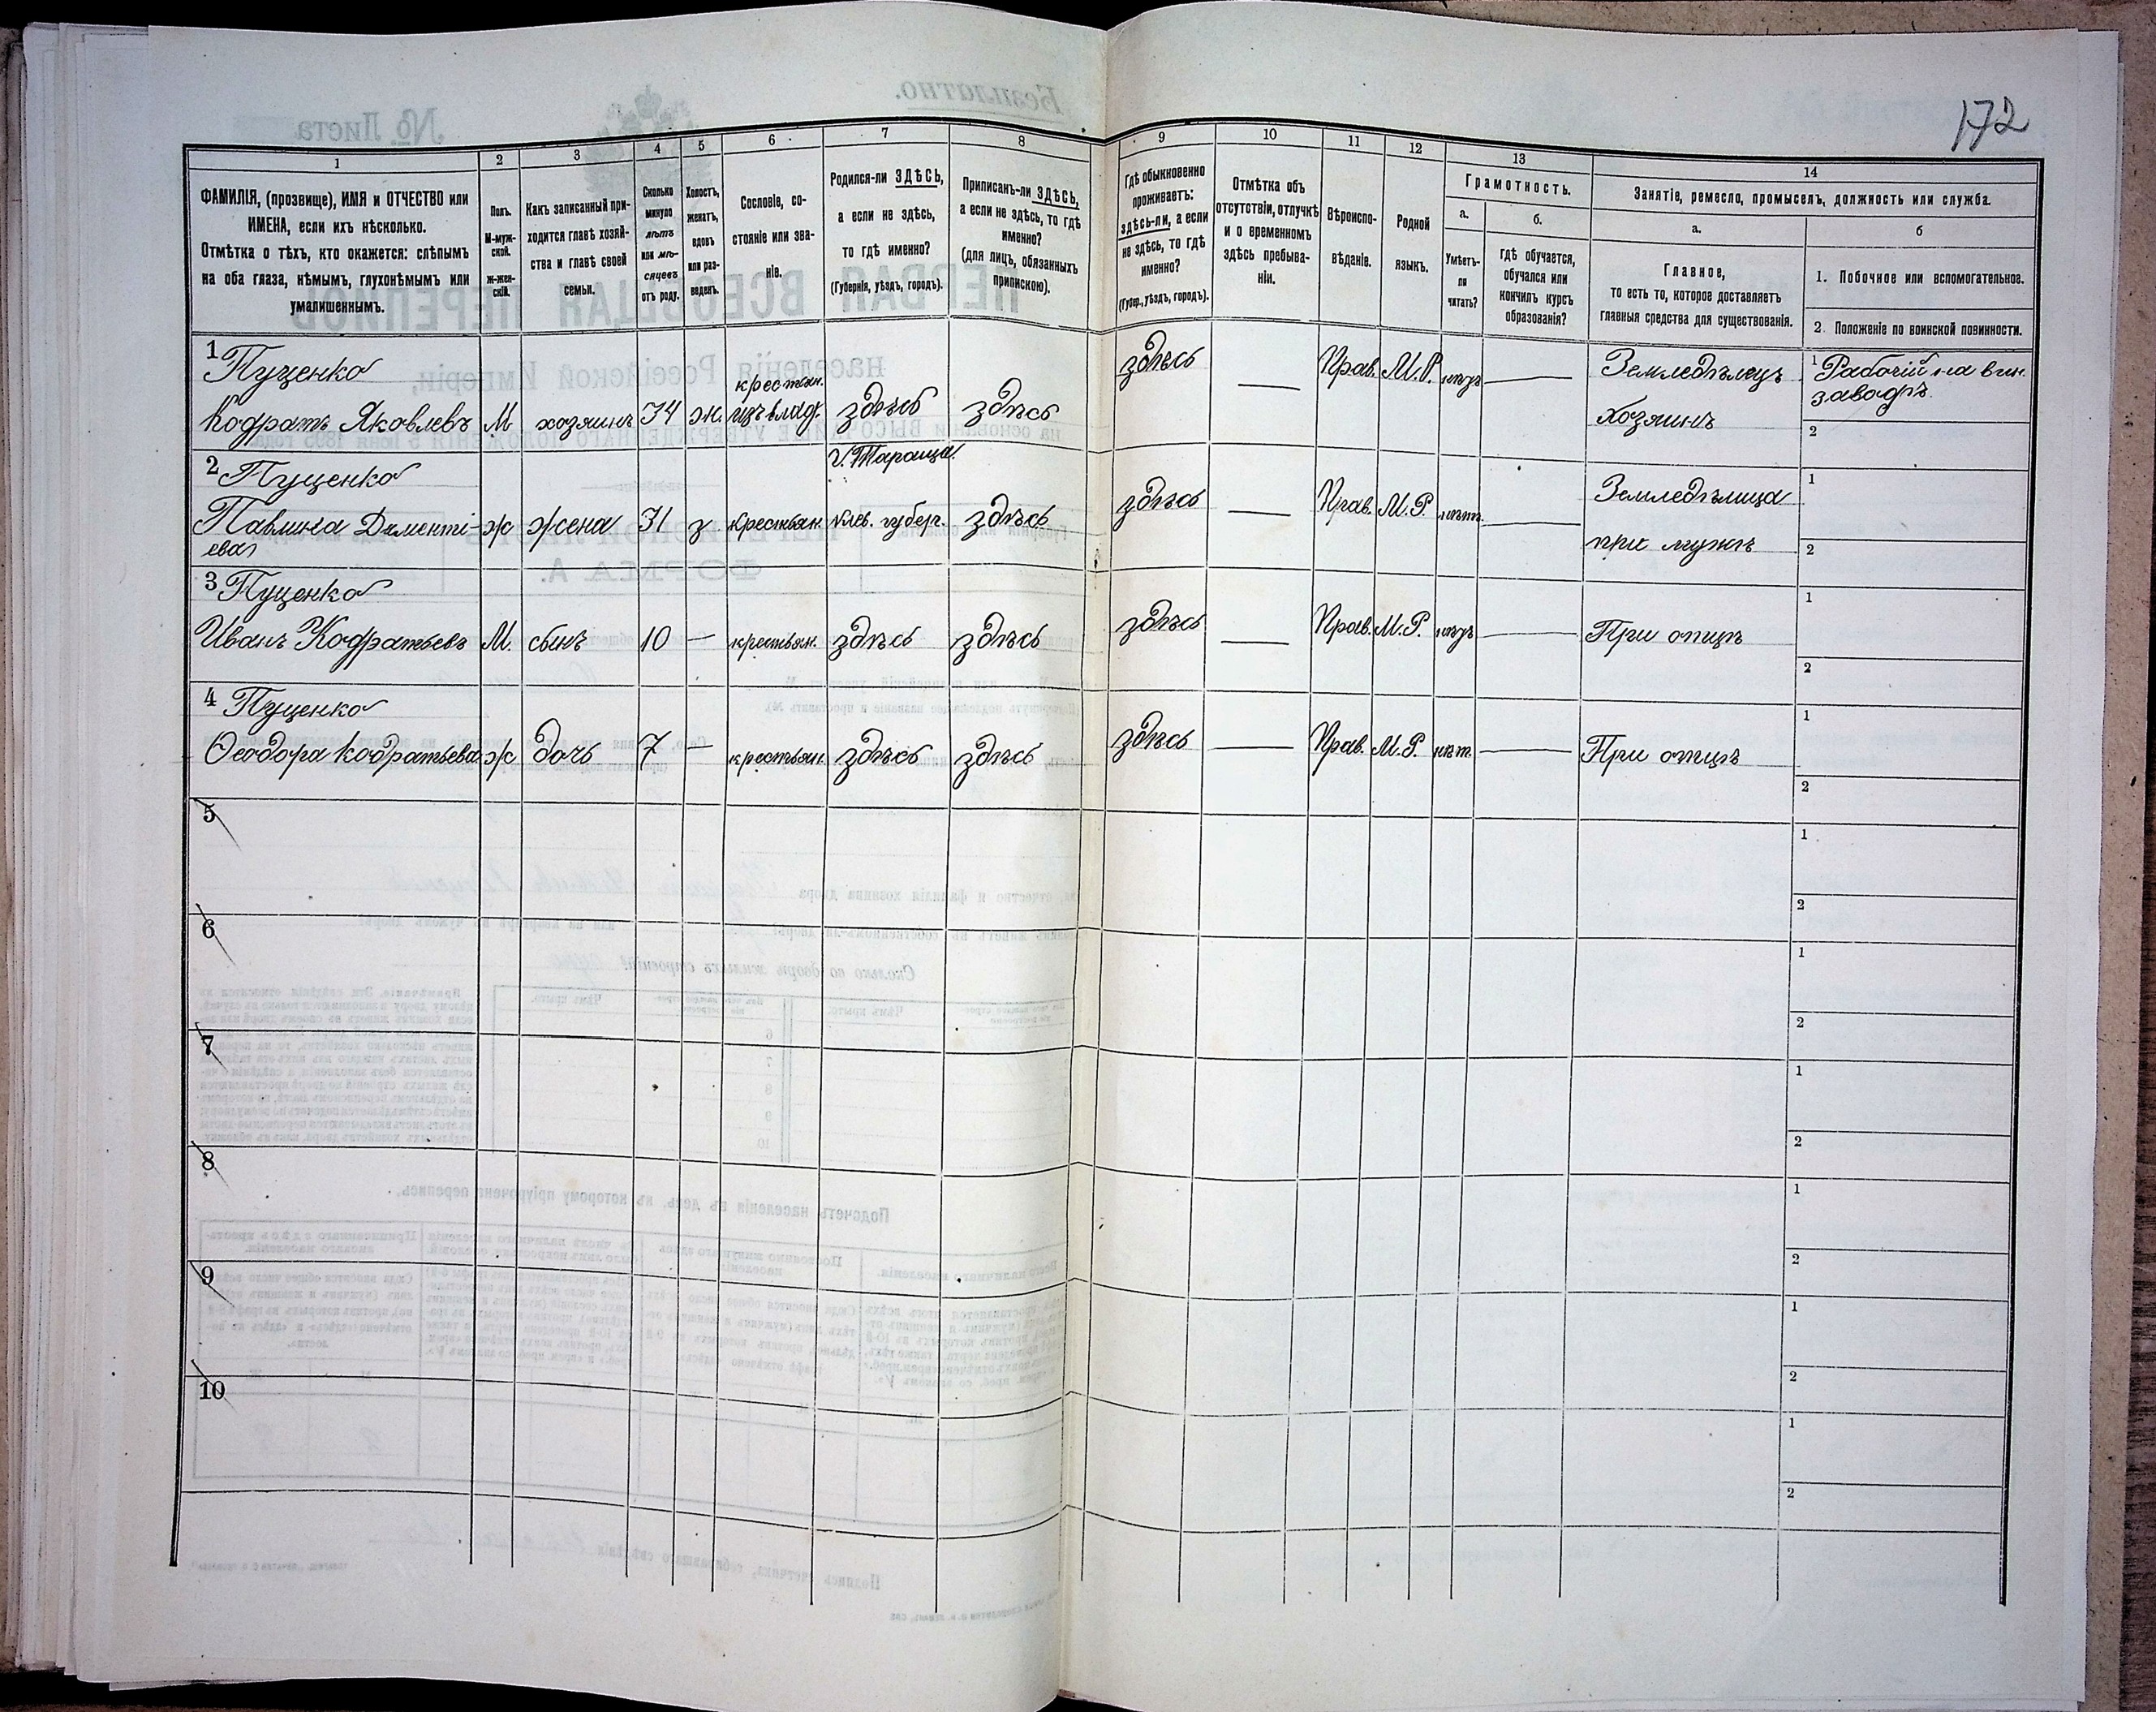 172
1
2
3
4
5
6
7
8
9
10
11
12
13
14
ФАМИЛІЯ, (прозвище), ИМЯ и ОТЧЕСТВО или
ИМЕНА, если ихъ нѣсколько.
Отмѣтка о тѣхъ, кто окажется: слѣпымъ
на оба глаза, нѣмымъ, глухонѣмымъ или
умалишеннымъ.
Полъ.
М-муж-
ской.
ж-жен-
скій.
Какъ записанный при-
ходится главѣ хозяй-
ства и главѣ своей
семьи.
Сколько
минуло
лѣтъ
или мѣ-
сяцевъ
отъ роду.
Холостъ,
женатъ,
вдовъ
или раз-
веденъ.
Сословіе, со-
стояніе или зва-
ніе.
Родился-ли ЗДѢСЬ,
а если не здѣсь,
то гдѣ именно?
(Губернія, уѣздъ, городъ).
Приписанъ-ли ЗДѢСЬ,
а если не здѣсь, то гдѣ
именно?
(для лицъ, обязанныхъ
припискою).
Гдѣ обыкновенно
проживаетъ:
здѣсь-ли, а если
не здѣсь, то гдѣ
именно?
(Губер., уѣздъ, городъ).
Отмѣтка объ
отсутствіи, отлучкѣ
и о временномъ
здѣсь пребыва-
ніи.
Вѣроиспо-
вѣданіе.
Родной
языкъ.
Грамотность.
а.
Умѣетъ-
ли
читать?
б.
гдѣ обучается,
обучался или
кончилъ курсъ
образованія?
Занятіе, ремесло, промыселъ, должность или служба.
а.
Главное,
то есть то, которое доставляетъ
главныя средства для существованія.
б
1. Побочное или вспомогательное.
2. Положеніе по воинской повинности.
1 Пуценко
Кодратъ Яковлевъ М хозяинъ 34 ж. крестьян. изъ влад. здѣсь здѣсь здѣсь — Прав. М.Р. — Земледѣлецъ хозяинъ
1 Рабочій на вин.
заводѣ.
2
2 Пуценко
Павлина Дементі-
ева ж жена 31 з крестьян. г. Тараща Кіев. губерн. здѣсь здѣсь — Прав. М.Р. нѣтъ — Земледѣлица при мужѣ
1
2
3 Пуценко
Иванъ Кодратьевъ М. сынъ 10 — крестьян. здѣсь здѣсь здѣсь — Прав. М.Р. — При отцѣ
1
2
4 Пуценко
Ѳеодора Кодратьева ж дочь 7 — крестьян. здѣсь здѣсь здѣсь — Прав. М.Р. нѣт. — При отцѣ
1
2
5
1
2
6
1
2
7
1
2
8
1
2
9
1
2
10
1
2